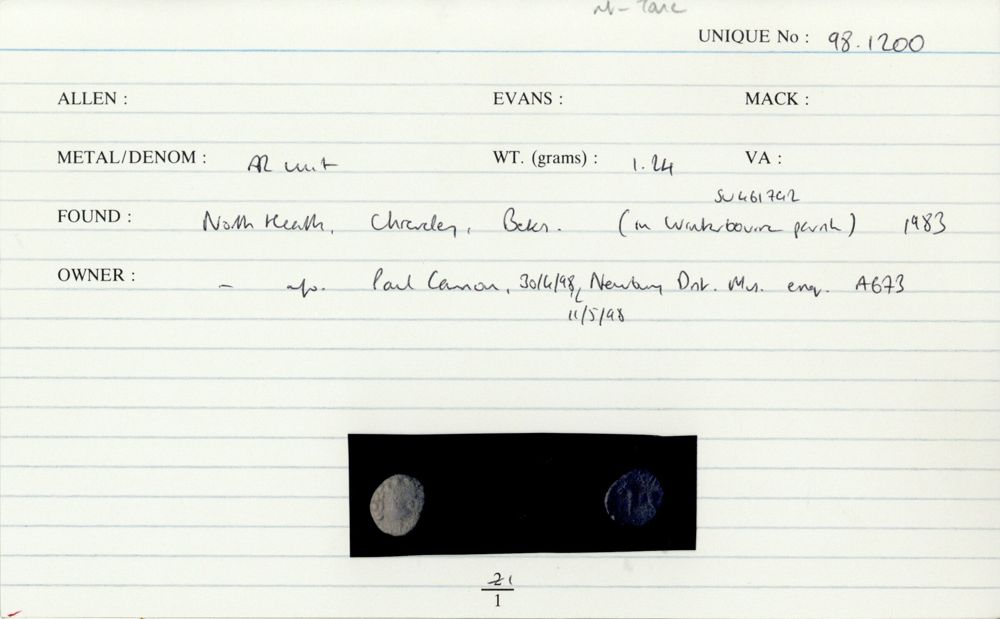 UNIQUE No : 98.1200
ALLEN : EVANS : MACK :
METAL/DENOM : AR unit WT. (grams) : 1.24 VA :
SU461742
FOUND : North Heath, Chieveley, Berks. (in Winterbourne parish) 1983
OWNER : – info. Paul Cannon, 30/4/98, Newbury Dist. Mus. enq. A673
11/5/98
21
1